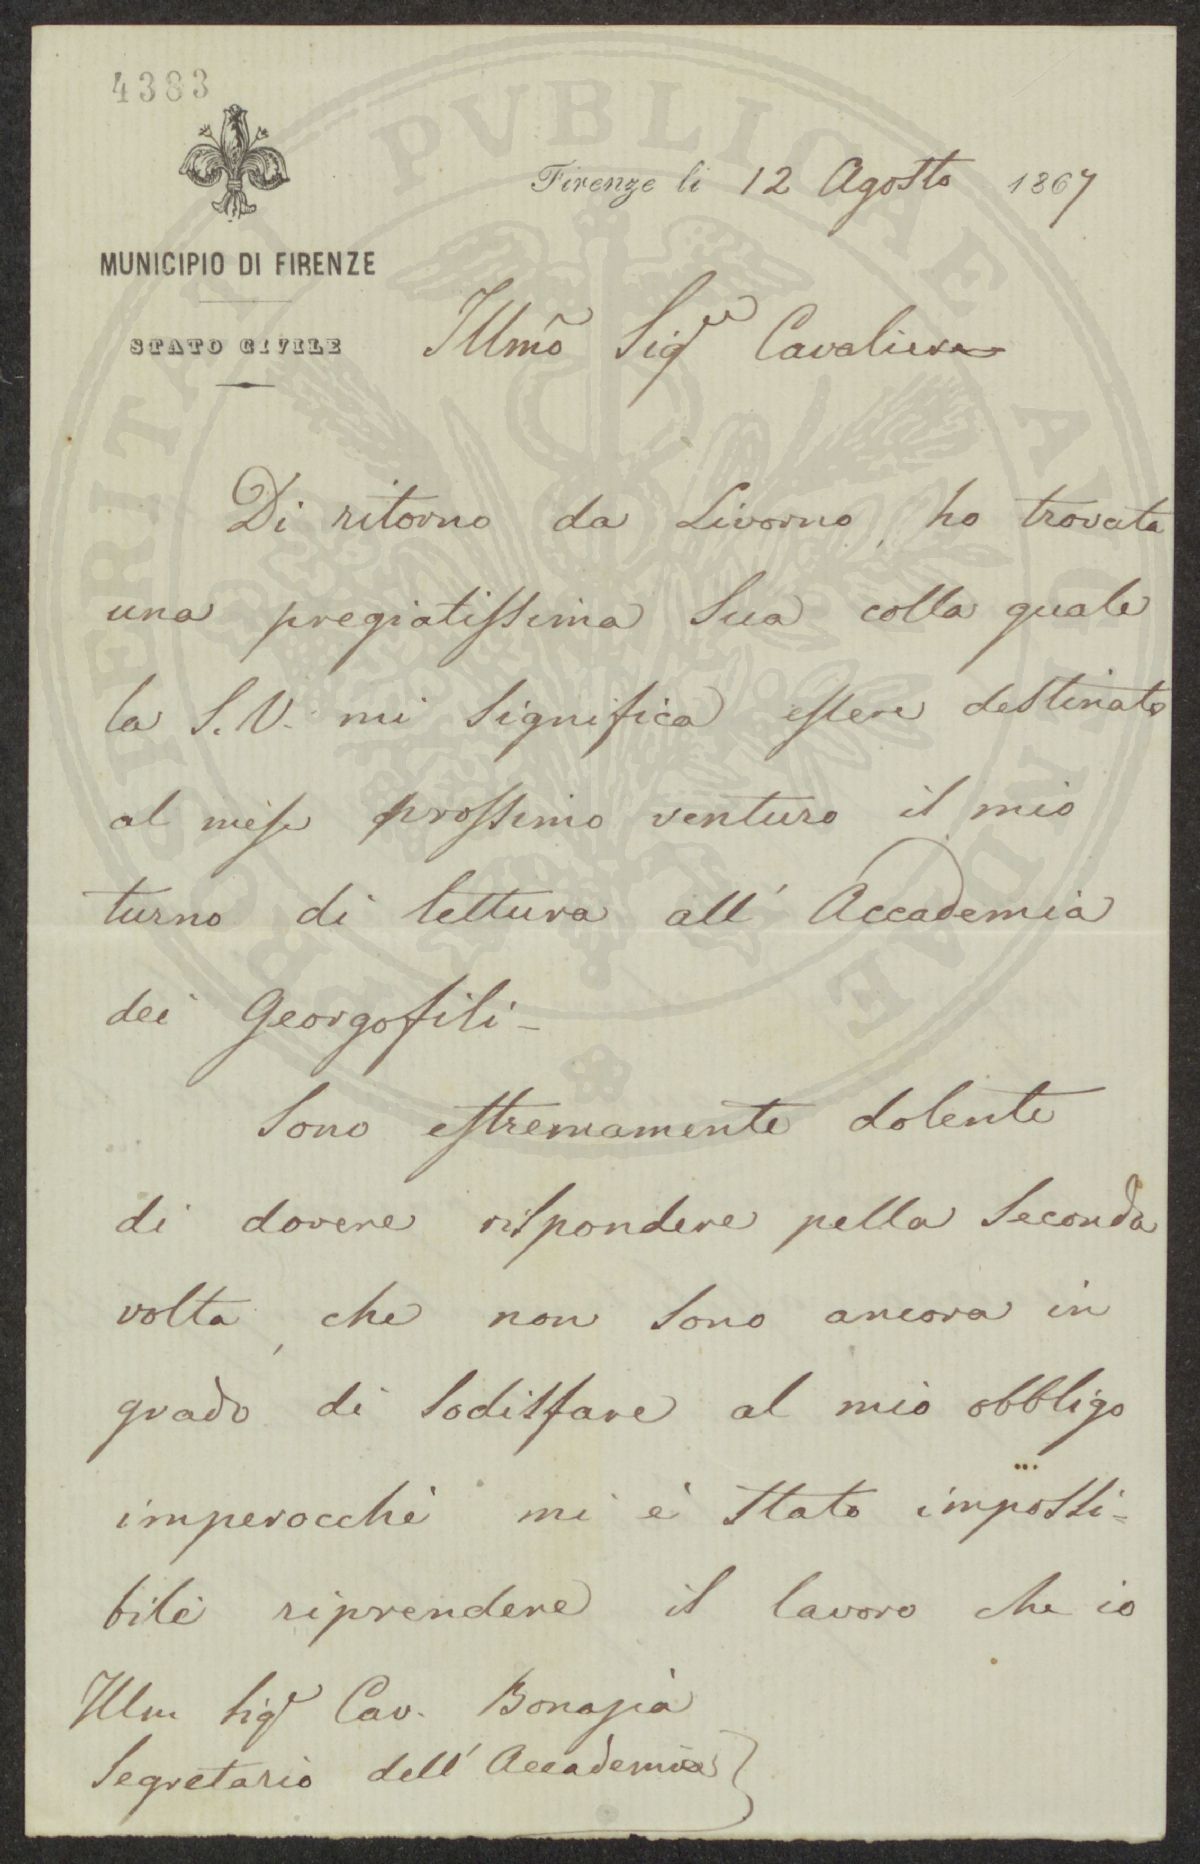 4383
Firenze li 12 Agosto 1867
MUNICIPIO DI FIRENZE
STATO CIVILE
Illmõ Sigre Cavaliere
Di ritorno da Livorno, ho trovata
una pregiatissima Sua colla quale
la S. V. mi significa essere destinato
al mese prossimo venturo il mio
turno di lettura all' Accademia
dei Georgofili -
Sono estremamente dolente
di dovere rispondere pella Seconda
volta, che non sono ancora in
grado di sodisfare al mio obbligo
imperocchè mi è stato impossi=
bile riprendere il lavoro che io
Illm Sigr Cav.
Segretario dell' Accademia
PROSPERITATI PVBLICAE AVGENDAE